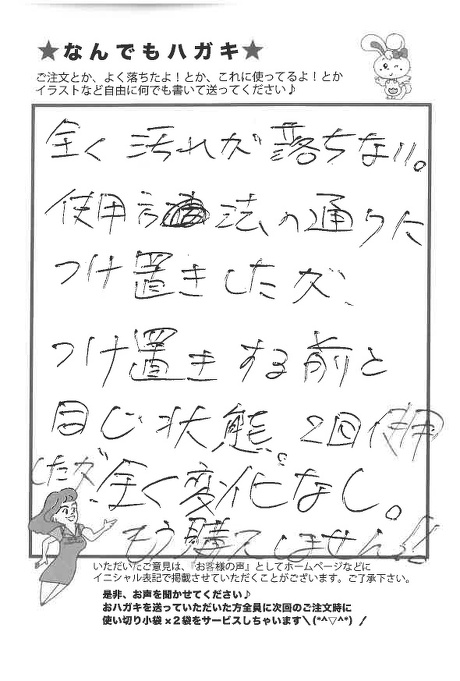 ★なんでもハガキ★
ご注文とか、よく落ちたよ！とか、これに使ってるよ！とか
イラストなど自由に何でも書いて送ってください♪
全く汚れが落ちない。
使用法の通りに
つけ置きしたが、
つけ置きする前と
同じ状態。2回使用
したが全く変化なし。
もう購入しません!!
いただいたご意見は、『お客様の声』としてホームページなどに
イニシャル表記で掲載させていただくことがございます。ご了承下さい。
是非、お声を聞かせてください♪
おハガキを送っていただいた方全員に次回のご注文時に
使い切り小袋×2袋をサービスしちゃいます＼(*^▽^*)／